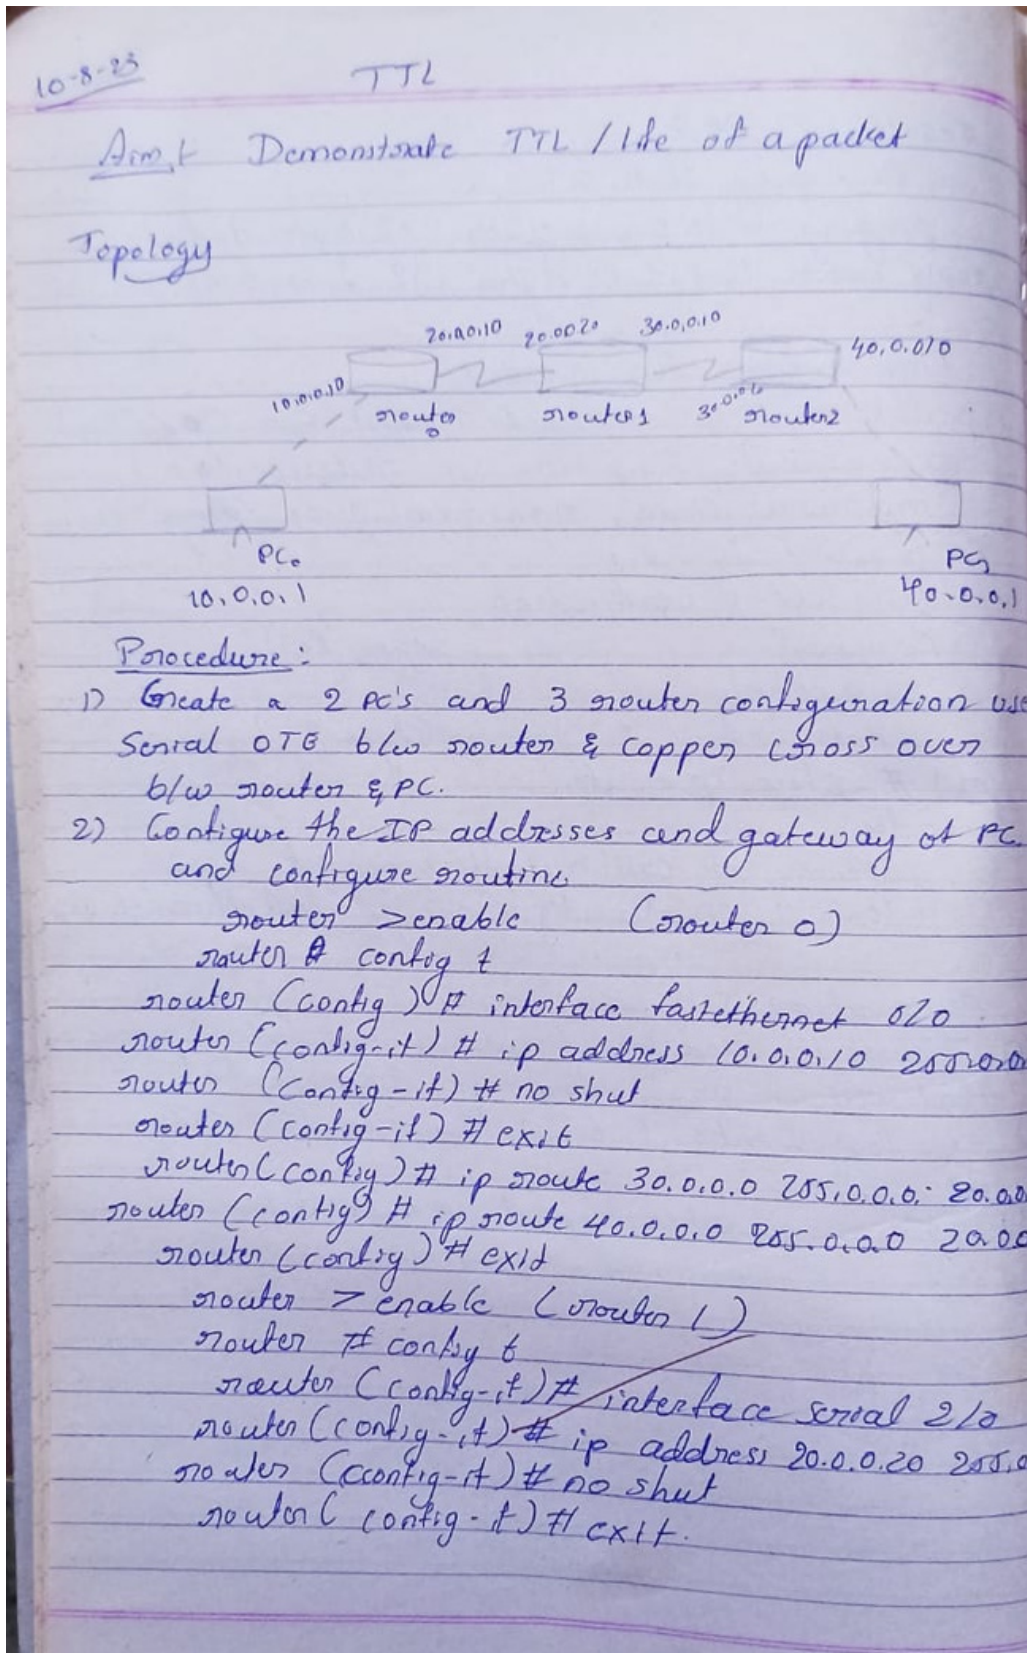 10-8-23
TTL
Aim :- Demonstrate TTL / life of a packet
Topology
20.0.0.10 20.0.0.20 30.0.0.10
40.0.0.10
10.0.0.10
router 0 router 1 router 2
PC0 PC1
10.0.0.1 40.0.0.1
Procedure :
1) Create a 2 PC's and 3 router configuration use
Serial OTE b/w router & copper cross over
b/w router & PC.
2) Configure the IP addresses and gateway of PC
and configure routing
router >enable (router 0)
router # config t
router (config) # interface fastethernet 0/0
router (config-if) # ip address 10.0.0.10
router (config-if) # no shut
router (config-if) # exit
router (config) # ip route 30.0.0.0 255.0.0.0 20.0.0
router (config) # ip route 40.0.0.0 255.0.0.0 20.0.0
router (config) # exit
router > enable (router 1)
router # config t
router (config-if) # interface serial 2/0
router (config-if) # ip address 20.0.0.20 255.0
router (config-if) # no shut
router ( config-if) # exit.